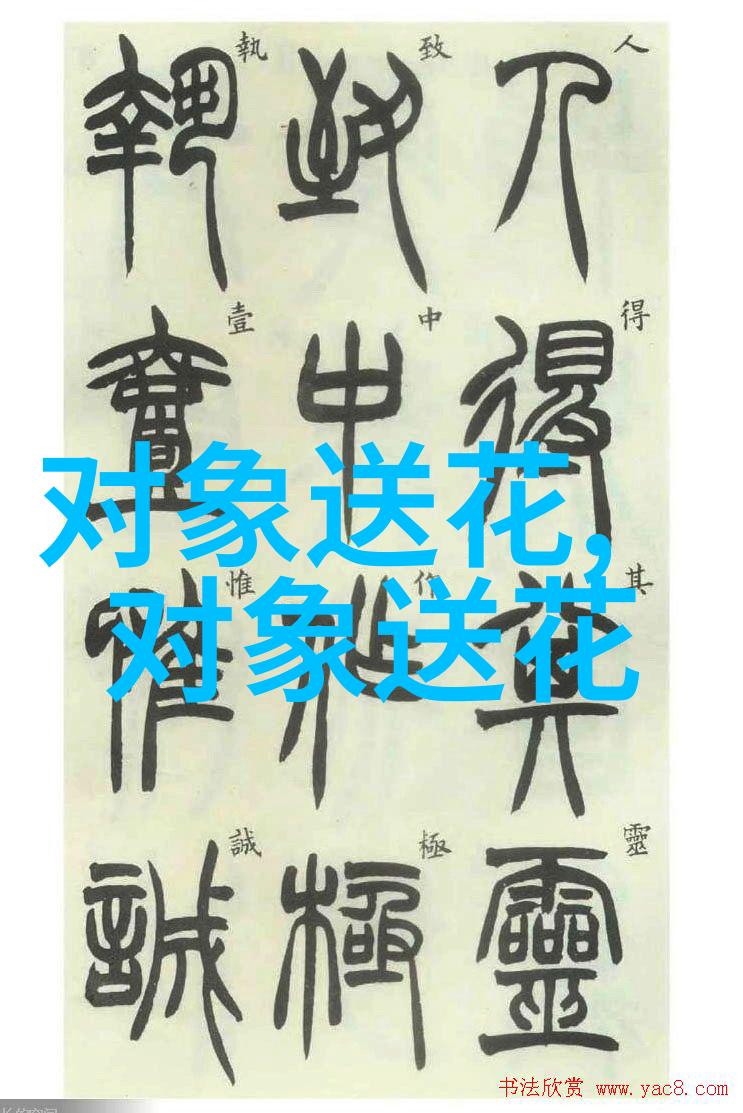 人得其靈
致中作極
執壹惟誠
对象送花,
对象送花
书法欣赏 www.yac8.com